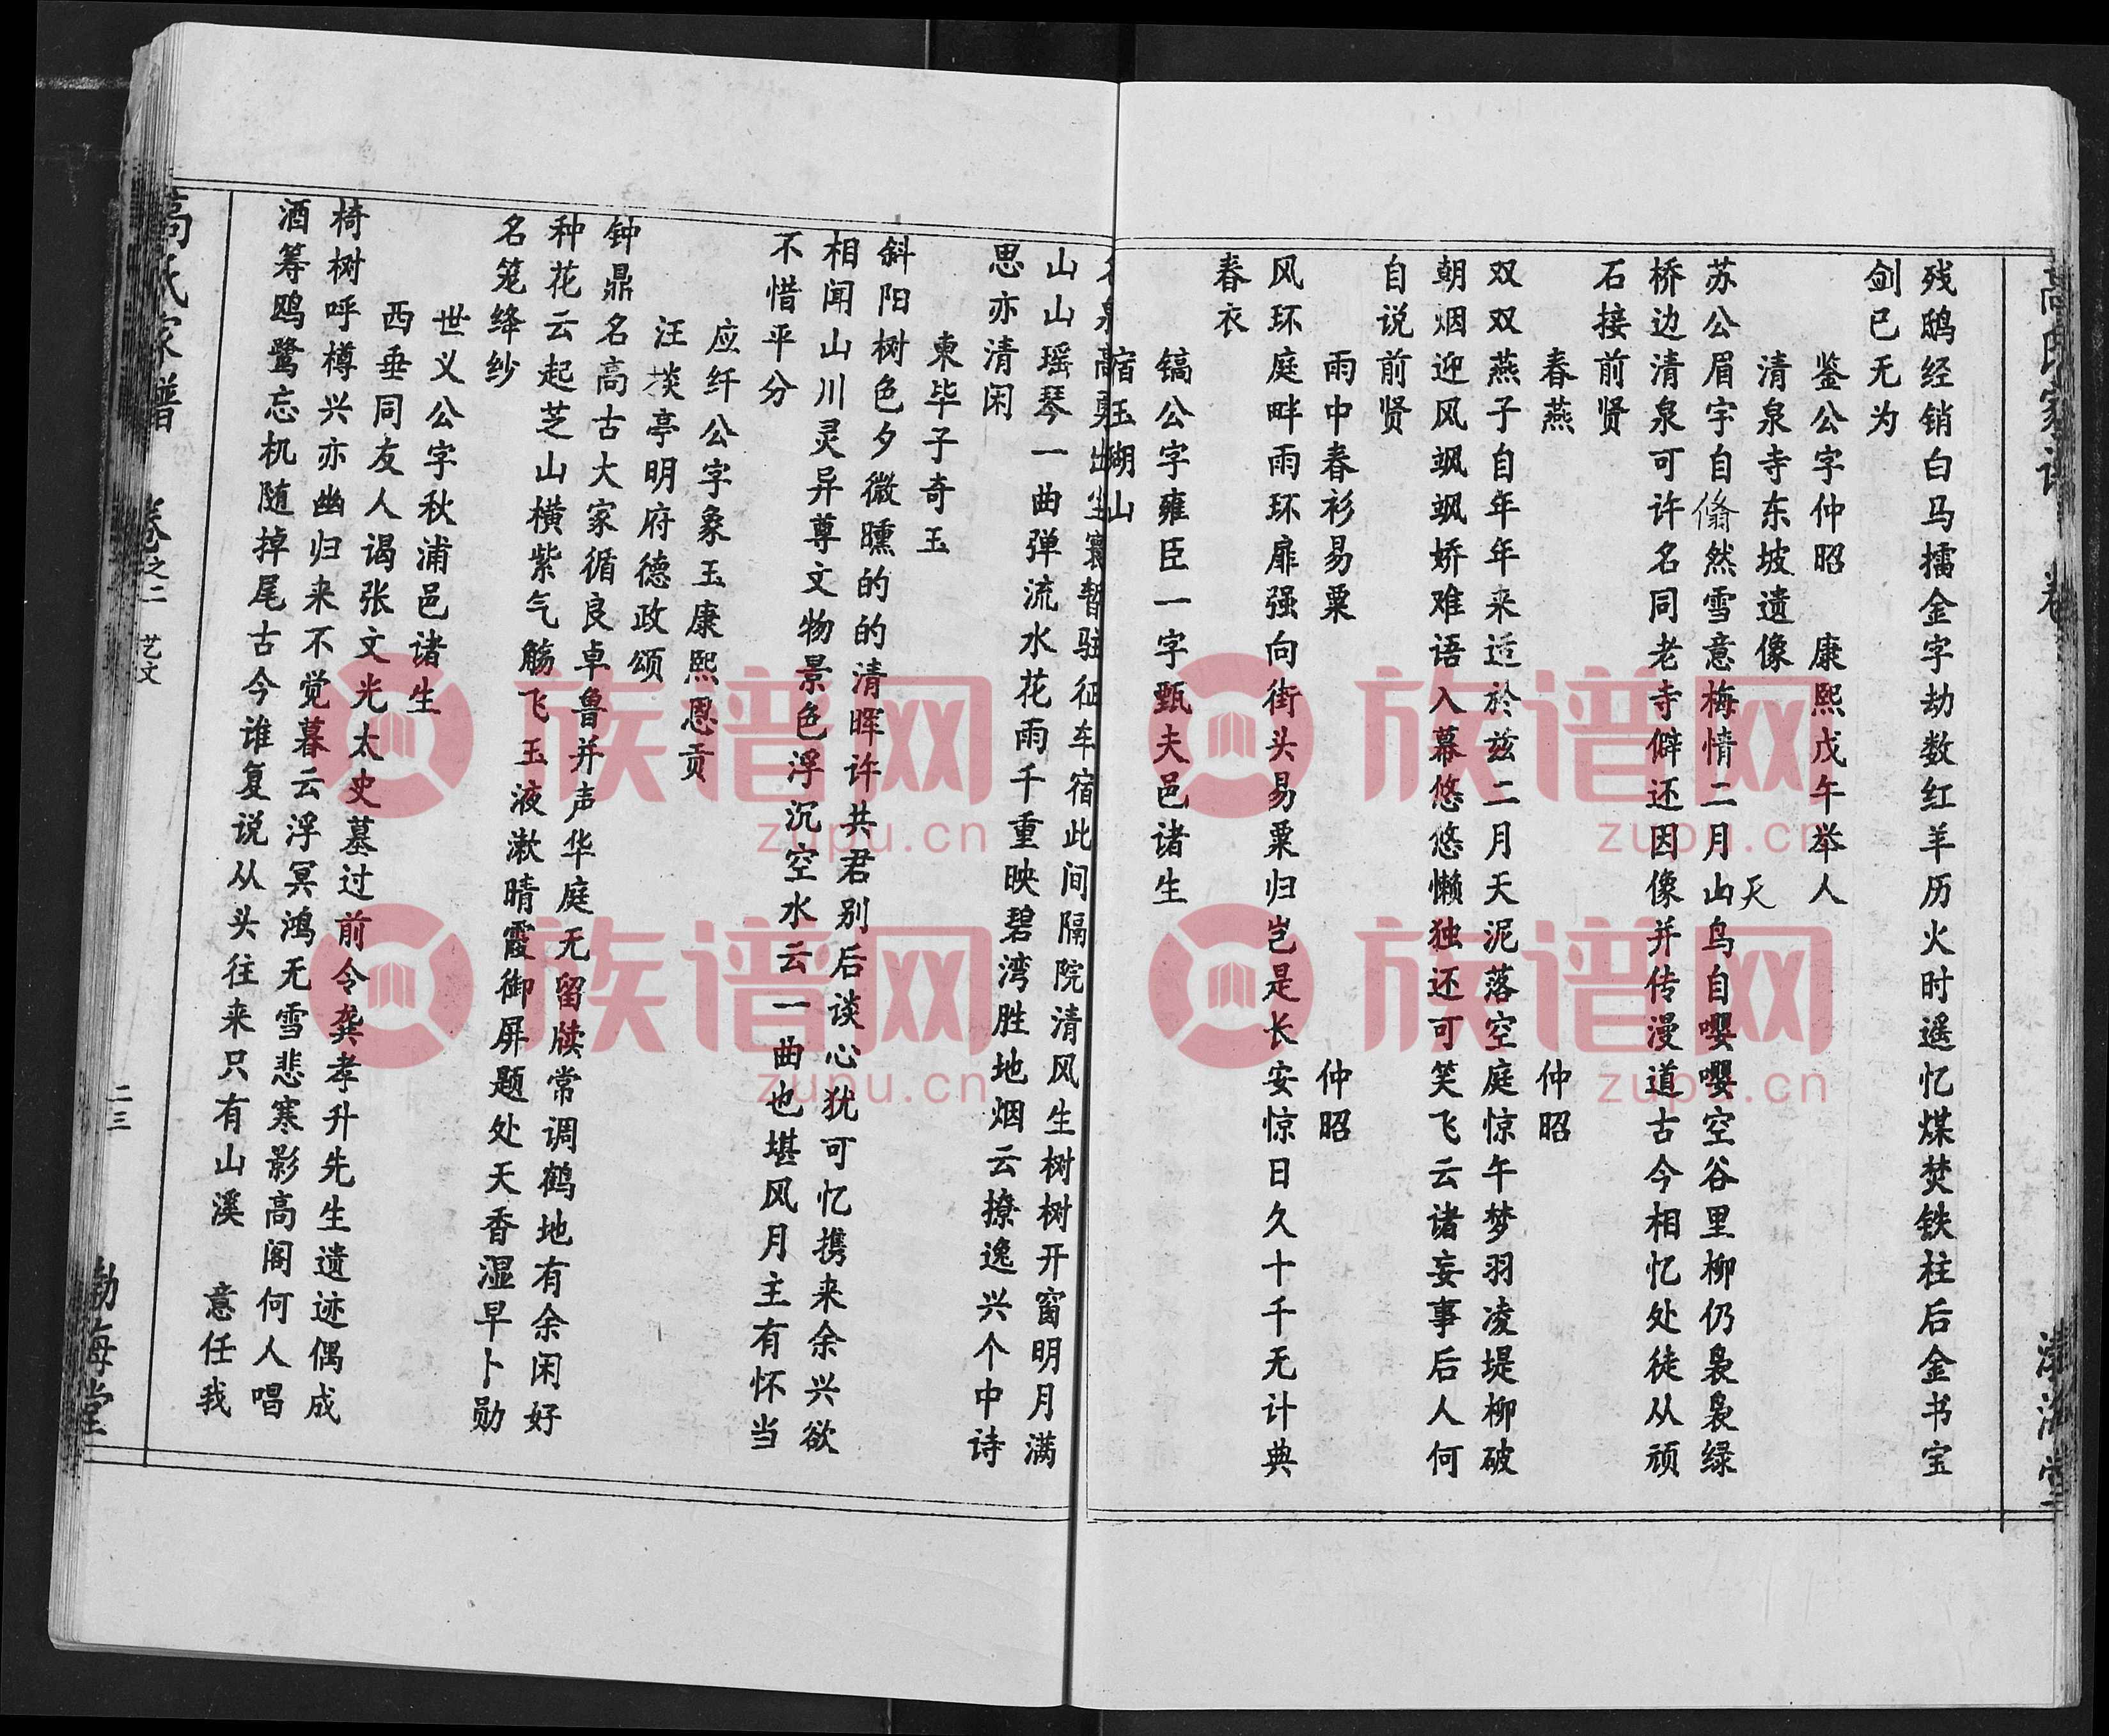 残鸱经销白马擂金字劫数红羊历火时遥忆煤焚铁柱后金书宝
剑已无为
鉴公字仲昭 康熙戊午举人
清泉寺东坡遗像
天
苏公眉宇自翛然雪意梅情二月山鸟自嘤嘤空谷里柳仍袅袅绿
桥边清泉可许名同老寺僻还因像并传漫道古今相忆处徒从顽
石接前贤
春燕 仲昭
双双燕子自年年来适於兹二月天泥落空庭惊午梦羽凌堤柳破
朝烟迎风飒飒娇难语入幕悠悠懒独还可笑飞云诸妄事后人何
自说前贤
雨中春衫易粟 仲昭
风环庭畔雨环扉强向街头易粟归岂是长安惊日久十千无计典
春衣
镐公字雍臣一字甄夫邑诸生
宿玉湖山
泉高出尘寰暂驻征车宿此间隔院清风生树树开窗明月满
山山瑶琴一曲弹流水花雨千重映碧湾胜地烟云撩逸兴个中诗
思亦清闲
柬毕子奇玉
斜阳树色夕微曛的的清晖许共君别后谈心犹可忆携来余兴欲
相闻山川灵异尊文物景色浮沉空水云一曲也堪风月主有怀当
不惜平分
应纤公字象玉康熙恩贡
汪掞亭明府德政颂
钟鼎名高古大家循良卓鲁并声华庭无留牍常调鹤地有余闲好
种花云起芝山横紫气觞飞玉液漱晴霞御屏题处天香湿早卜勋
名笼绛纱
世义公字秋浦邑诸生
西垂同友人谒张文光太史墓过前令龚孝升先生遗迹偶成
椅树呼樽兴亦幽归来不觉暮云浮冥鸿无雪悲寒影高阁何人唱
酒筹鸥鹭忘机随掉尾古今谁复说从头往来只有山溪 意任我
高氏家谱 卷之二 艺文 二三 勃海堂
族谱网
zupu.cn
族谱网
zupu.cn
族谱网
zupu.cn
族谱网
zupu.cn